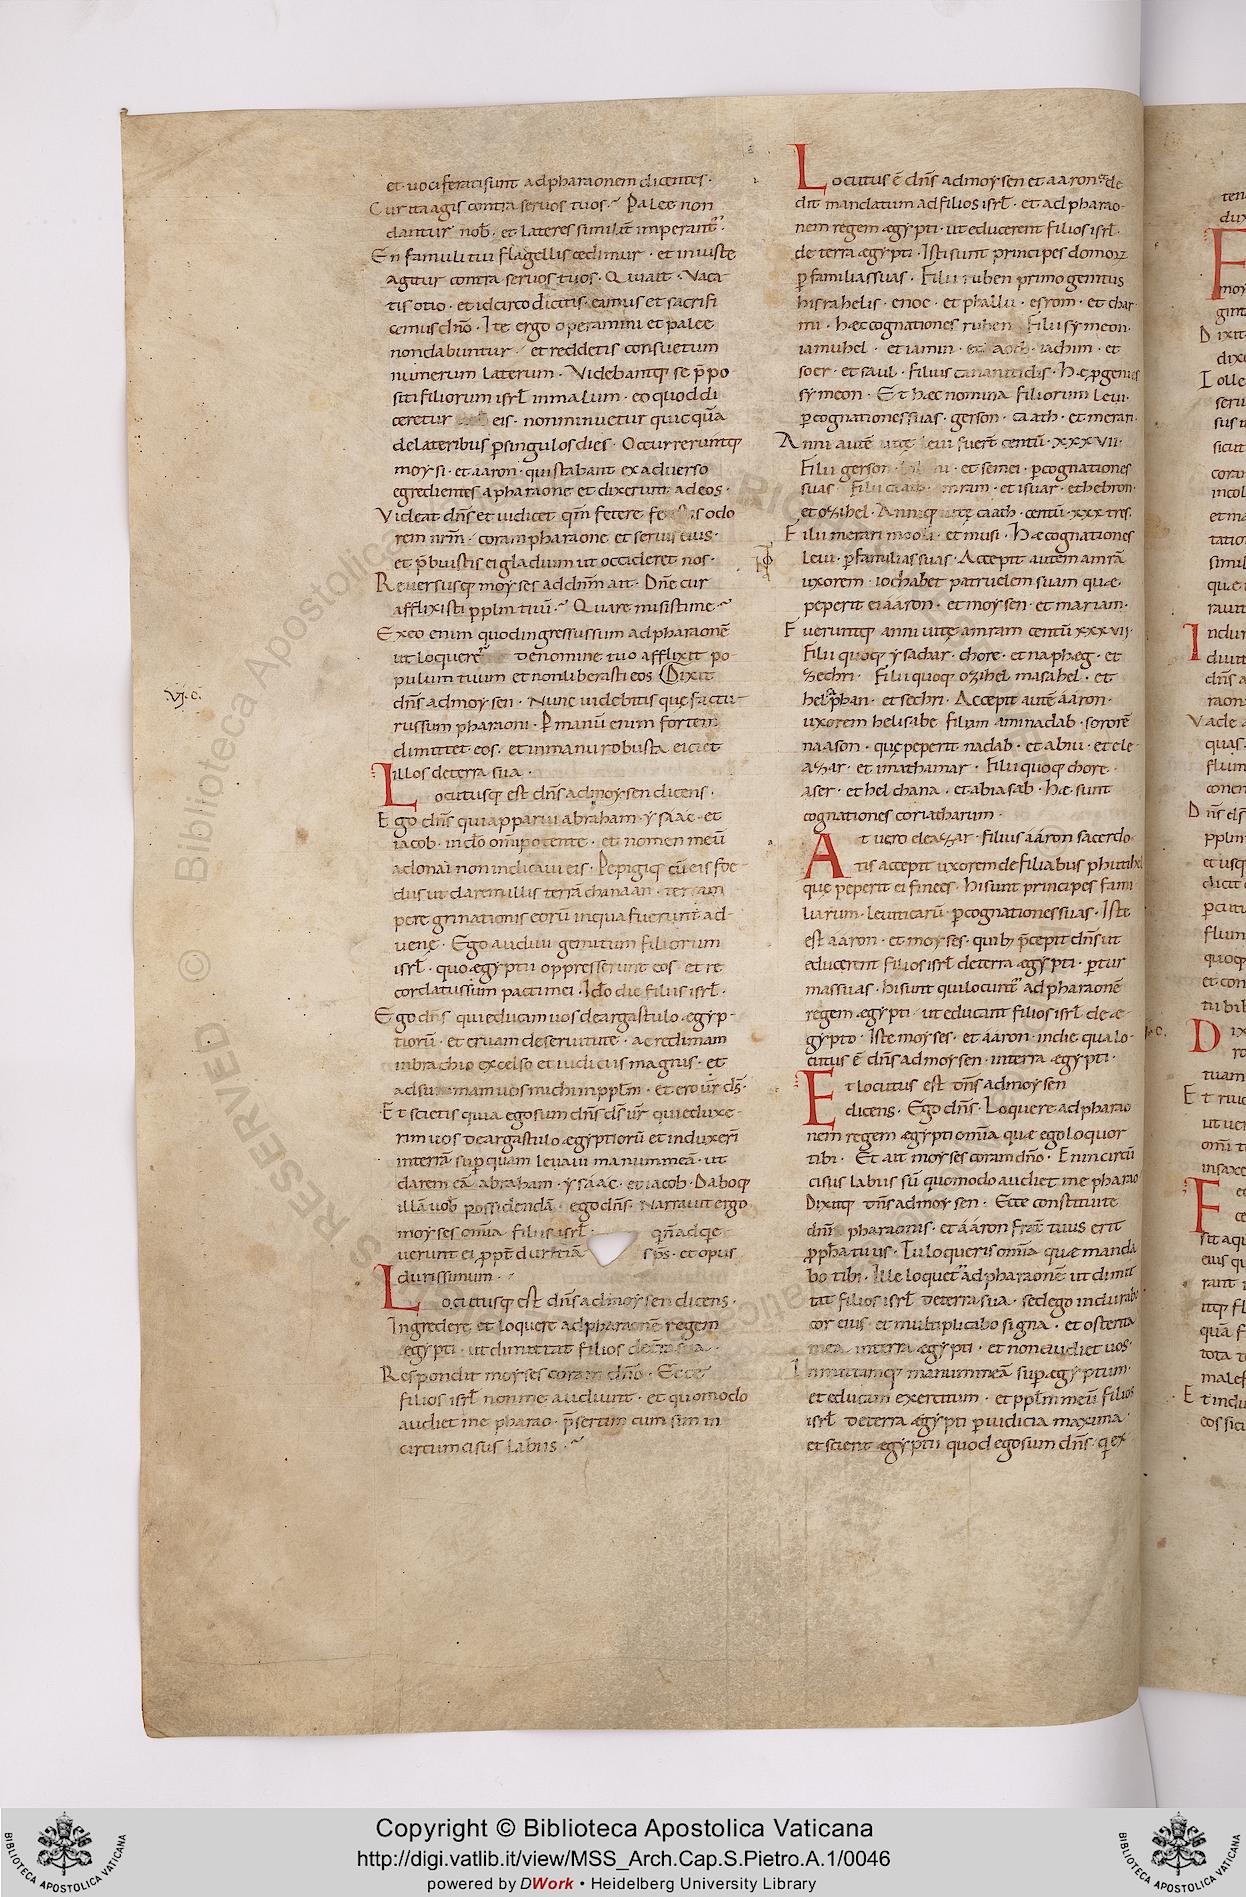 et uociferati sunt ad pharaonem dicentes·
Cur ita agis contra seruos tuos· Paleæ non
dantur nob̄· et lateres similit̄ imperant᷑·
En famuli tui flagellis cedimur· et iniuste
agitur contra seruos tuos· Qui ait· Vaca
tis otio· et idcirco dicitis· eamus et sacrifi
cemus dño· Ite ergo operamini et paleæ
non dabuntur· et reddetis consuetum
numerum laterum· Videbantq; se p̄po
siti filiorum isrł in malum· eo quod di
ceretur eis· non minuetur quicquā
de lateribus p̱ singulos dies· Occurreruntq;
moysi· et aaron· qui stabant ex aduerso
egredientes a pharaone et dixerunt ad eos·
Videat dñs et iudicet· qm̄ fetere fecistis odo
rem nrm̄· coram pharaone et seruis eius·
et p̄buistis ei gladium ut occideret nos·
Reuersusq; moyses ad dñm ait· Dñe cur
afflixisti pplm tuū· Quare misisti me·
Ex eo enim quo d ingressus sum ad pharaonē
ut loquerer᷑ de nomine tuo afflixit po
pulum tuum et non liberasti eos· Dixit
dñs ad moysen· Nunc uidebitis quę factu
rus sum pharaoni· P̱ manū enim fortem
dimittet eos· et in manu robusta eiciet
illos de terra sua·
VI· c̄·
Locutusq; est dñs ad moysen dicens·
Ego dñs qui apparui abraham· ysaac· et
iacob· in dō om̄ipotente· et nomen meū
adonai non indicaui eis· Pepigiq; cū eis foe
dus ut darem illis terrā chanaan· terram
peregrinationis eorū in qua fuerunt ad
uenę· Ego audiui gemitum filiorum
isrł· quo ægyptii oppresserunt eos· et re
cordatus sum pacti mei· Ido dic filiis isrł·
Ego dñs qui educam uos de argastulo ægyp
tiorū· et eruam de seruitute· ac redimam
in brachio excelso et iudiciis magnis· et
adsumam uos michi in pplm̄· et ero ur̄ ds̄·
Et scietis quia ego sum dñs ds̄ ur̄ qui eduxe
rim uos de argastulo ægyptiorū et induxerī
in terrā sup̱ quam leuaui manum meā· ut
darem eā abraham· ysaac· et iacob· Daboq;
illā uob̄ possidendā· ego dñs· Narrauit ergo
moyses om̄ia filiis isrł· qui n̄ adqie
uerunt ei p̱p̱t̄ duritiā sp̄s· et opus
durissimum·
Locutusq; est dñs ad moysen dicens·
Ingredere et loquere ad pharaonē regem
ægypti· ut dimittat filios de terra sua·
Respondit moyses coram dño· Ecce
filii os isrł non me audiunt· et quomodo
audiet me pharao· p̄sertim cum sim in
circumcisus labiis·
Locutus ē dñs ad moysen et aaron· et de
dit mandatum ad filios isrł· et ad pharao
nem regem ægypti· ut educerent filios isrł·
de terra ægypti· Isti sunt principes domoꝝ
p̱ familias suas· Filii ruben primogenitus
hisrahelis· enoc· et phallu· esrom· et char
mi· hæ cognationes ruben· Filii symeon·
iamuhel· et iamin· et aoth· iachim· et
soer· et saul· filius cananitidis· hæ p̱genies
symeon· Et hæc nomina filiorum leui·
p̱ cognationes suas· gerson· caath· et merari·
Anni autē uitę leui fuer̄t centū· xxxvii·
Filii gerson· lobeni· et semei· p̱ cognationes
suas· Filii caath· amram· et isuar· et hebron·
et ozihel· Anniq; uitę caath· centū· xxx tres·
Filii merari mooli· et musi· Hæ cognationes
leui· p̱ familias suas· Accepit autem amrā
uxorem· iochabet patruelem suam quæ
peperit ei aaron· et moysen· et mariam·
Fueruntq; anni uitę amram centū xxxvii·
Filii quoq; ysachar· chore· et naphæg· et
zechri· Filii quoq; ozihel misahel· et
helphan· et sechri· Accepit autē aaron·
uxorem helisabe filiam aminadab· sororē
naason· quę peperit nadab· et abiu· et ele
azar· et imathamar· Filii quoq; chore·
aser· et helchana· et abiasab· Hæ sunt
cognationes coriatharum·
At uero eleazar· filius aaron sacerdo
tis accepit uxorem de filiabus phutihel
quę peperit ei finees· hi sunt principes fami
liarum· leuiticarū· p̱ cognationes suas· Iste
est aaron· et moyses· quib; p̄cepit dñs ut
educerent filios isrł de terra ægypti· p̱ tur
mas suas· hi sunt qui locunt᷑ ad pharaonē
regem ægypti· ut educant filios isrł de æ
gypto· Iste moyses· et aaron· in die qua lo
cutus ē dñs ad moysen· in terra ægypti·
Et locutus est dñs ad moysen
dicens· Ego dñs· Loquere ad pharao
nem regem ægypti om̄ia quæ ego loquor
tibi· Et ait moyses coram dño· En incircū
cisus labiis sū quomodo audiet me pharao
Dixitq; dñs ad moysen· Ecce constitui te
dm̄ pharaonis· et aaron frat̄ tuus erit
p̱p̱ha tuus· Tu loqueris om̄ia quæ manda
bo tibi· Ille loquet᷑ ad pharaonē ut dimit
tat filios isrł de terra sua· sed ego indurabo
cor eius· et multiplicabo signa· et ostenta
mea· in terra ægypti· et non audiet uos·
Inmittamq; manum meā sup̱ ægyptum·
et educam exercitum· et pplm meū filios
isrł de terra ægypti p̱ iudicia maxima·
et scient ægyptii quod ego sum dñs· q̱ ex
Copyright © Biblioteca Apostolica Vaticana
http://digi.vatlib.it/view/MSS_Arch.Cap.S.Pietro.A.1/0046
powered by DWork • Heidelberg University Library